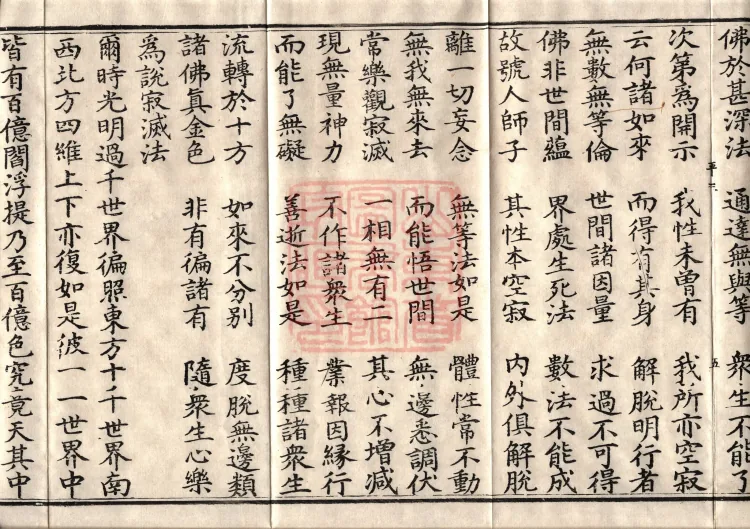 佛於甚深法 通達無與等 衆生不能了
次第為開示 我性未曽有 我所亦空寂
云何諸如來 而得有其身 解脫明行者
無數無等倫 世間諸因量 求過不可得
佛非世間蘊 界處生死法 數法不能成
故號人師子 其性本空寂 内外俱解脫
離一切妄念 無等法如是 體性常不動
無我無來去 而能悟世間 無邊悉調伏
常樂觀寂滅 一相無有二 其心不增減
現無量神力 不作諸衆生 業報因縁行
而能了無礙 善逝法如是 種種諸衆生
流轉於十方 如來不分別 度脫無邊類
諸佛真金色 非有徧諸有 隨衆生心樂
為說寂滅法
爾時光明過千世界徧照東方十千世界南
西北方四維上下亦復如是彼一一世界中
皆有百億閻浮提乃至百億色究竟天其中